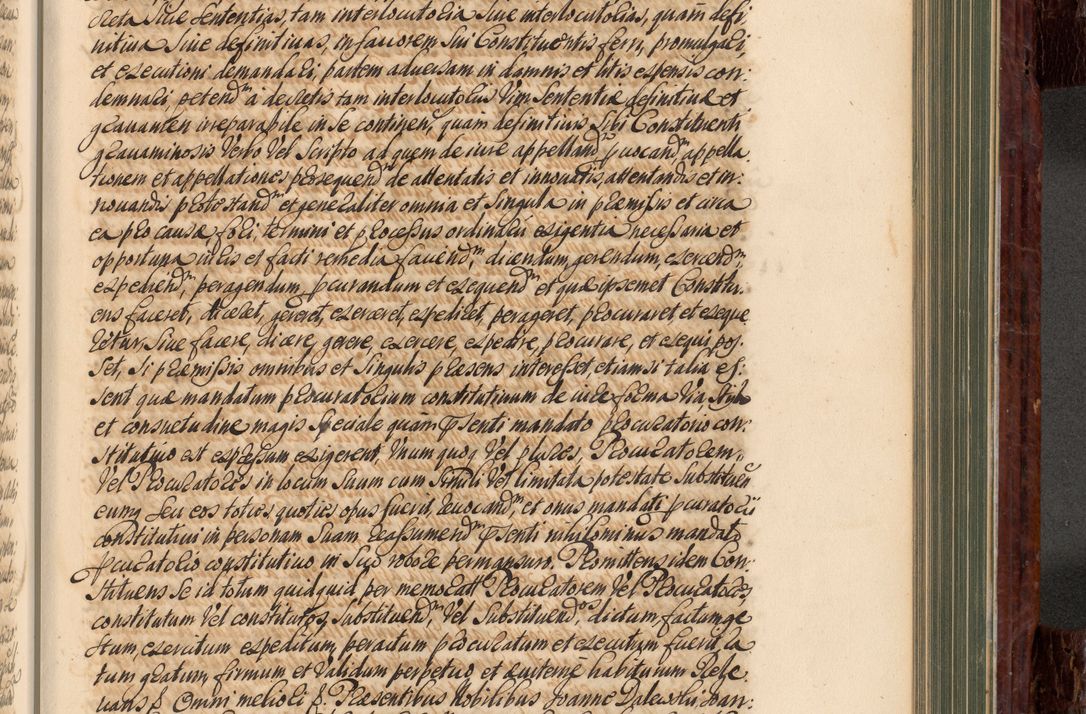 creta Siue Sententias, tam interlocutoria Siue interlocutorias, quàm defi
nitiua Siue definitiuas, in fauorem Sui Constituentis ferri, promulgari,
et executioni demandari, partem aduersam in damnis et litis expensis con:
demnari, petend^m à decretis tam interlocutorijs Vim Sententiæ definitiuæ et
grauamen irreparabile in Se continen, quàm definitiuis Sibi Constituenti
grauaminosis Verbo Vel Scripto ad quem de iure appelland^m puocand^m appella
tionem et appellationes prosequend^m de attentatis et innouatis, attentandis et in:
nouandis protestand^m et generaliter omnia et Singula in præmissis et circa
ea pro causæ, fori, termini et processus ordinarij exigentia necessaria et
opportuna iuris et facti remedia faciend^m, dicendum, gerendum, exercend^m
expediend^m, peragendum, pcurandum et exequend^m et quæ ipsemet Constitu:
ens faceret, diceret, gereret, exerceret, expediret, perageret, procuraret et exeque
retur Siue facere, dicere, gerere, exercere, expedire, procurare, et exequi pos:
Set, Si præmissis omnibus et Singulis præsens interesset, etiam si talia es:
sent quæ mandatum procuratorium constitutiuum de iure forma Via, Stylo
et consuetudine magis Speciale quàm Psenti mandato procuratorio con:
stitutiuo est expressum exigerent. Vnum quoq Vel plures, Procuratorem,
Vel Procuratores in locum Suum cum Simili Vel limitata potestate Substituen
eumq Seu eos toties quoties opus fuerit, reuocand^m, et onus mandati pcuratorij
constitutiui in personam Suam reassumend^m Psenti nihilominus mandato
Pcuratorio constitutiuo in Suo robore permansuro. Promittens idem Con:
stituens Se id totum quidquid per memorat Procuratorem Vel Procuratores,
constitutum Vel constitutos, Substituend^m, Vel Substituend^os, dictum, factum ge
stum, exercitum expeditum, peractum procuratum et executum fuerit, ra
tum gratum, firmum et Validum perpetuo et euiterne habiturum Rele
uans p. Omni meliori p. Præsentibus Nobilibus Joanne Joan: